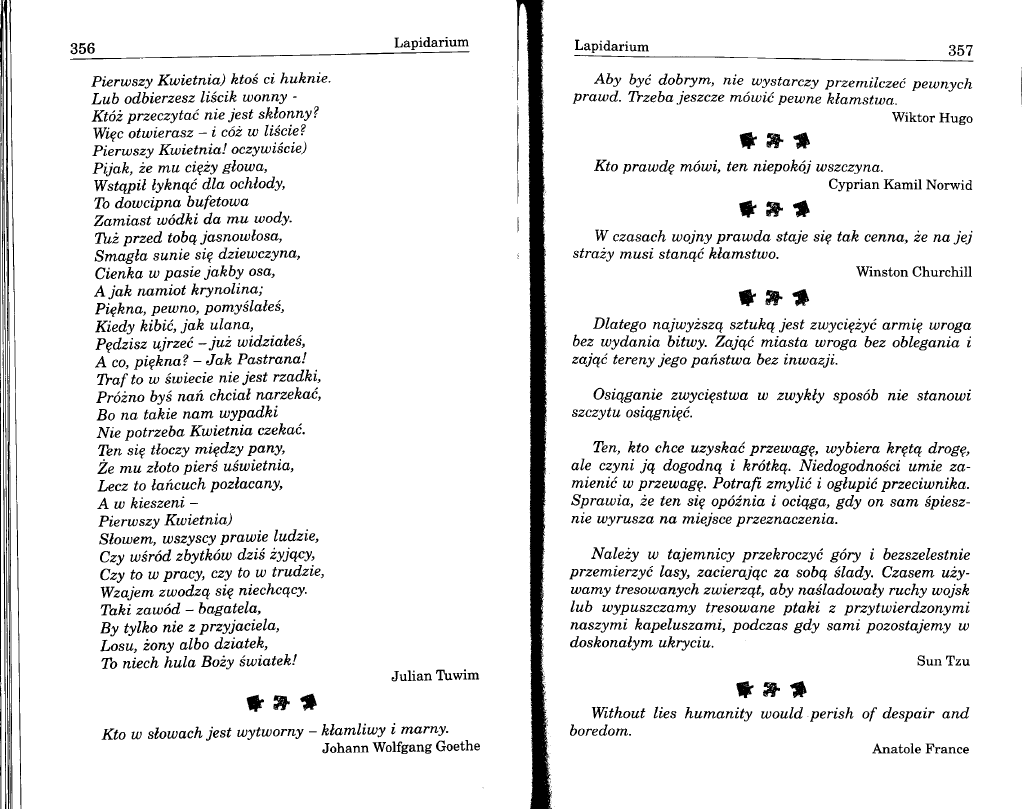 356 Lapidarium
Pierwszy Kwietnia) ktoś ci huknie.
Lub odbierzesz liścik wonny -
Któż przeczytać nie jest skłonny?
Więc otwierasz – i cóż w liście?
Pierwszy Kwietnia! oczywiście)
Pijak, że mu cięży głowa,
Wstąpił łyknąć dla ochłody,
To dowcipna bufetowa
Zamiast wódki da mu wody.
Tuż przed tobą jasnowłosa,
Smagła sunie się dziewczyna,
Cienka w pasie jakby osa,
A jak namiot krynolina;
Piękna, pewno, pomyślałeś,
Kiedy kibić, jak ulana,
Pędzisz ujrzeć – już widziałeś,
A co, piękna? – Jak Pastrana!
Traf to w świecie nie jest rzadki,
Próżno byś nań chciał narzekać,
Bo na takie nam wypadki
Nie potrzeba Kwietnia czekać.
Ten się tłoczy między pany,
Że mu złoto pierś uświetnia,
Lecz to łańcuch pozłacany,
A w kieszeni –
Pierwszy Kwietnia)
Słowem, wszyscy prawie ludzie,
Czy wśród zbytków dziś żyjący,
Czy to w pracy, czy to w trudzie,
Wzajem zwodzą się niechcący.
Taki zawód – bagatela,
By tylko nie z przyjaciela,
Losu, żony albo dziatek,
To niech hula Boży światek!
Julian Tuwim
Kto w słowach jest wytworny – kłamliwy i marny.
Johann Wolfgang Goethe
Lapidarium 357
Aby być dobrym, nie wystarczy przemilczeć pewnych
prawd. Trzeba jeszcze mówić pewne kłamstwa.
Wiktor Hugo
Kto prawdę mówi, ten niepokój wszczyna.
Cyprian Kamil Norwid
W czasach wojny prawda staje się tak cenna, że na jej
straży musi stanąć kłamstwo.
Winston Churchill
Dlatego najwyższą sztuką jest zwyciężyć armię wroga
bez wydania bitwy. Zająć miasta wroga bez oblegania i
zająć tereny jego państwa bez inwazji.
Osiąganie zwycięstwa w zwykły sposób nie stanowi
szczytu osiągnięć.
Ten, kto chce uzyskać przewagę, wybiera krętą drogę,
ale czyni ją dogodną i krótką. Niedogodności umie za-
mienić w przewagę. Potrafi zmylić i ogłupić przeciwnika.
Sprawia, że ten się opóźnia i ociąga, gdy on sam śpiesz-
nie wyrusza na miejsce przeznaczenia.
Należy w tajemnicy przekroczyć góry i bezszelestnie
przemierzyć lasy, zacierając za sobą ślady. Czasem uży-
wamy tresowanych zwierząt, aby naśladowały ruchy wojsk
lub wypuszczamy tresowane ptaki z przytwierdzonymi
naszymi kapeluszami, podczas gdy sami pozostajemy w
doskonałym ukryciu.
Sun Tzu
Without lies humanity would perish of despair and
boredom.
Anatole France